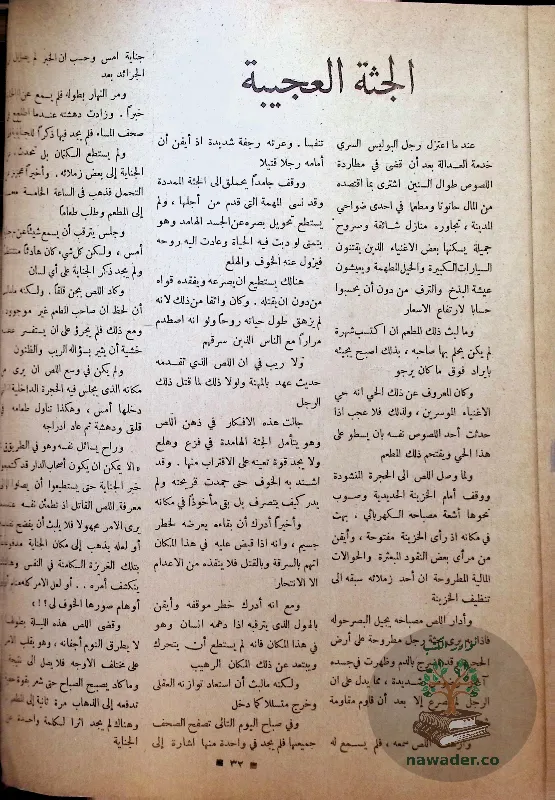 الجثة العجيبة
عند ما اعتزل رجل البوليس السري
خدمة العدالة بعد أن قضى في مطاردة
اللصوص طوال السنين اشترى بما اقتصده
من المال حانوتا ومطعما في احدى ضواحي
المدينة ، تجاوره منازل شائقة وسروح
جميلة يسكنها بعض الاغنياء الذين يقتنون
السيارات الكبيرة والخيل المطهمة ويعيشون
عيشة البذخ والترف من دون أن يحسبوا
حسابا لارتفاع الاسعار
وما لبث ذلك المطعم ان اكتسب شهرة
لم يكن يحلم بها صاحبه ، بذلك اصبح يجيئه
بايراد فوق ما كان يرجو
وكان المعروف عن ذلك الحي انه حي
الاغنياء الموسرين ، ولذلك فلا عجب اذا
حدثت أحد اللصوص نفسه بان يسطو على
هذا الحي ويقتحم ذلك المطعم
ولما وصل اللص الى الحجرة المنشودة
ووقف أمام الخزينة الحديدية وصوب
نحوها أشعة مصباحه الكهربائي ، بهت
في مكانه اذ رأى الخزينة مفتوحة ، وأيقن
من مرأى بعض النقود المبعثرة والحوالات
المالية المطروحة ان أحد زملائه سبقه الى
تنظيف الخزينة
وأدار اللص مصباحه يجيل البصر حوله
فاذا به يرى جثة رجل مطروحة على أرض
وظهرت في جسده
شديدة ، مما يدل على ان
إلا بعد أن قاوم مقاومة
اللص سمعه ، فلم يسمع له
تنفسا . وعرته رجفة شديدة اذ أيقن أن
أمامه رجلا قتيلا
ووقف جامداً يحملق الى الجثة الممددة
وقد نسى المهمة التي قدم من أجلها ، ولم
يستطع تحويل بصره عن الجسد الهامد وهو
يتمنى لو دبت فيه الحياة وعادت اليه روحه
فيزول عنه الخوف والهلع
هنالك يستطيع ان يصرعه ويفقده قواه
من دون ان يقتله . وكان واثقا من ذلك لانه
لم يزهق طول حياته روحا ولو انه اصطدم
مراراً مع الناس الذين سرقهم
ولا ريب في ان اللص الذي تقدمه
حديث عهد بالمهنة ولولا ذلك لما قتل ذلك
الرجل
جالت هذه الافكار في ذهن اللص
وهو يتأمل الجثة الهامدة في فزع وهلع
ولا يجد قوة تعينه على الاقتراب منها . وقد
اشتد به الخوف حتى جمدت قريحته ولم
يدر كيف يتصرف بل بقي مأخوذاً في مكانه
وأخيراً أدرك أن بقاءه يعرضه لخطر
جسيم ، وانه اذا قبض عليه في هذا المكان
اتهم بالسرقة وبالقتل فلا ينقذه من الاعدام
الا الانتحار
ومع انه أدرك خطر موقفه وأيقن
بالهول الذى يترقبه اذا دهمه انسان وهو
في هذا المكان فانه لم يستطع أن يتحرك
ويبتعد عن ذلك المكان الرهيب
ولكنه مالبث أن استعاد توازنه العقلى
وخرج متسللا كما دخل
وفي صباح اليوم التالى تصفح الصحف
جميعها فلم يجد في واحدة منها اشارة إلى
جناية امس وحسب ان الخبر لم
الجرائد بعد
ومر النهار بطوله فلم يسمع عن
خبراً . وزادت دهشته عندما اطلع
صحف المساء فلم يجد فيها ذكراً للجناية
ولم يستطع الكتمان بل تحدث
الجناية إلى بعض زملائه . وأخيراً
التحمل فذهب في الساعة الخامسة
إلى المطعم وطلب طعاما
وجلس يترقب أن يسمع شيئا عن
أمس ، ولكن كل شيء كان هادئا
ولم يجد ذكر الجناية على أي لسان
وكاد اللص يجن قلقا . ولكنه
أن لحظ ان صاحب المطعم غير موجود
ومع ذلك فلم يجرؤ على ان يستفسر
خشية أن يثير بسؤاله الريب والظنون
ولم يكن في وسع اللص ان يرى
مكانه الذى يجلس فيه الحجرة الداخلية
دخلها أمس ، وهكذا تناول طعامه
قلق ودهشة ثم عاد ادراجه
وراح يسائل نفسه وهو في الطريق
« ألا يمكن ان يكون أصحاب الدار قد
خبر الجناية حتى يستطيعوا أن يصلوا
معرفة القاتل اذ تطمئن نفسه
يرى الامر مجهولا فلا يلبث أن يفضح
أو لعله يذهب إلى مكان الجناية مدفوعا
بتلك الغريزة الكامنة في النفس
ينكشف أمره . . أو لعل الامر كله
أوهام صورها الخوف لى ؟ ! »
وقضى اللص هذه الليلة
لا يطرق النوم أجفانه ، وهو يقلب الامر
على مختلف الاوجه فلا يصل الى نتيجة
وماكاد يصبح الصباح حتى شعر بقوة
تدفعه إلى الذهاب مرة ثانية إلى المطعم
وهناك لم يجد اثرا لكلمة واحدة
الجناية
٣٢
نوادر الكتب
nawader.co